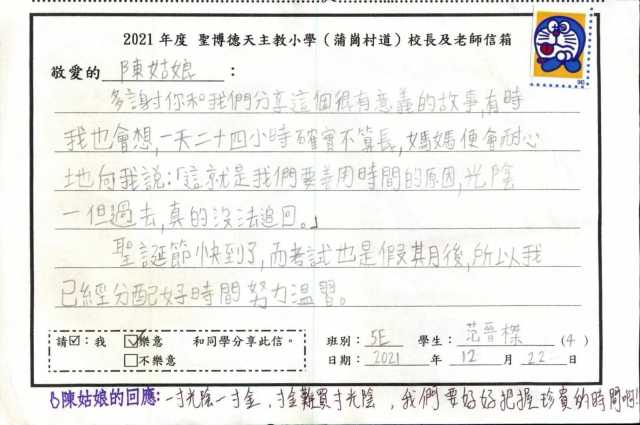 2021 年度 聖博德天主教小學（蒲崗村道）校長及老師信箱
敬愛的 陳姑娘 ：
多謝你和我們分享這個很有意義的故事,有時
我也會想,一天二十四小時確實不算長,媽媽便會耐心
地向我說:「這就是我們要善用時間的原因,光陰
一但過去,真的沒法追回。」
聖誕節快到了,而考試也是假期後,所以我
已經分配好時間努力溫習。
請☑：我 ☑樂意 和同學分享此信。
□不樂意
班別： 5E 學生： 范晉櫟 (4)
日期： 2021 年 12 月 22 日
陳姑娘的回應: 一寸光陰一寸金，寸金難買寸光陰，我們要好好把握珍貴的時間啊!!